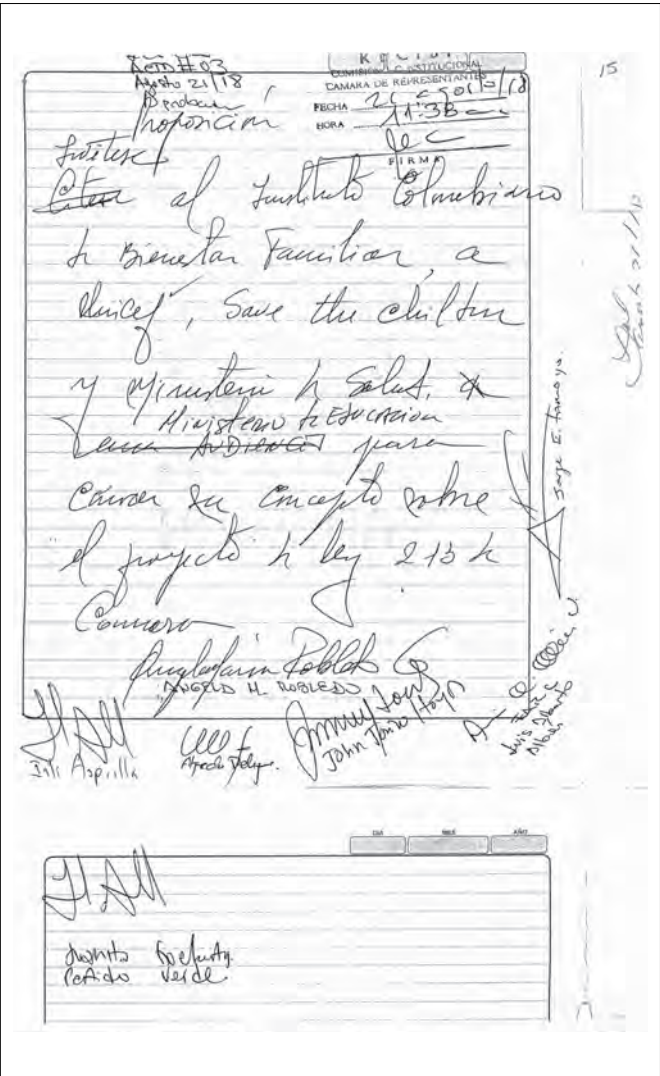 Acta #03
Agosto 21/18
Proposición
COMISION I CONSTITUCIONAL
CAMARA DE REPRESENTANTES
FECHA 21 agosto/18
HORA 11:38
FIRMA
15
Invitese
Citese al Instituto Colombiano
de Bienestar Familiar, a
Unicef, Save the children
y Ministerio de Salud, a
Ministerio de EDUCACION
una AUDIENCIA para
conocer su concepto sobre
el proyecto de ley 213 de
Camara
Angela Maria Robledo G
ANGELA M. ROBLEDO
Jorge E. Tamayo.
Inti Asprilla
Alfredo Deluque.
John Jairo Hoyos
Luis Alberto
Alban
DIA MES AÑO
Juanita Goebertus
Partido Verde